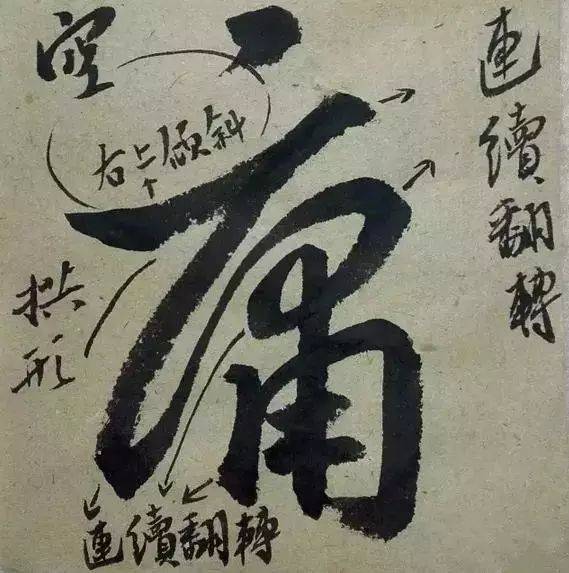 空
右上傾斜
連續翻轉
拱形
連續翻轉